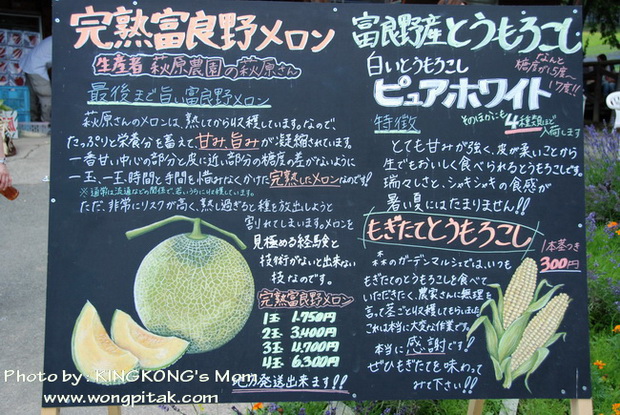 完熟富良野メロン
生産者 萩原農園の萩原さん
最後まで旨い富良野メロン
萩原さんのメロンは、熟してから収穫しています。なので、
たっぷりと栄養分を蓄えて甘み、旨みが凝縮されています。
一番甘い中心の部分と皮に近い部分の糖度の差がないように
一玉、一玉、時間と手間を惜みなくかけた完熟したメロンなのです!
※通常は流通などの関係で、若いうちに収穫しています。
ただ、非常にリスクが高く、熟し過ぎると種を放出しようと
割れてしまいます。メロンを
見極める経験と
技術がないと出来ない
技なのです。
完熟富良野メロン
1玉 1.750円
2玉 3.400円
3玉 4.700円
4玉 6.300円
地方発送出来ます!!
富良野産とうもろこし
白いとうもろこし
なんと
糖度が15度~
17度!!
ピュアホワイト
特徴
そのほかにも4種類ほど
入荷します
とても甘みが強く、皮が柔いことから
生でもおいしく食べられるとうもろこしです。
瑞々しさと、シャキシャキの食感が
暑い夏にはたまりません!!
もぎたてとうもろこし
1本茎つき
300円
森のガーデンマルシェでは、いつも
もぎたてのとうもろこしを食べて
いただきたく、農家さんに無理を
言って茎ごと収穫してもらいました
これは本当に大変な作業です。
本当に感謝です!
ぜひもぎたてを味わって
みて下さい!!
Photo by. KINGKONG's Mom
www.wongpitak.com